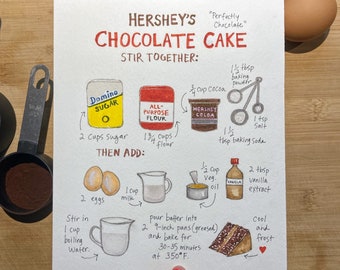 HERSHEY'S
"Perfectly Chocolate"
CHOCOLATE CAKE
STIR TOGETHER:
Domino
SUGAR
2 Cups Sugar
ALL-
PURPOSE
FLOUR
1 3/4 Cups flour
3/4 cup cocoa
HERSHEY
COCOA
1 1/2 tbsp
baking
powder
1 tsp
salt
1 1/2 tbsp baking soda
THEN ADD:
2 eggs
1 cup
milk
1/2 cup
veg.
oil
VANILLA
2 tbsp
vanilla
extract
Stir in
1 cup
boiling
water.
pour batter into
2 9-inch pans (greased)
and bake for
30-35 minutes
at 350°F.
Cool
and
frost